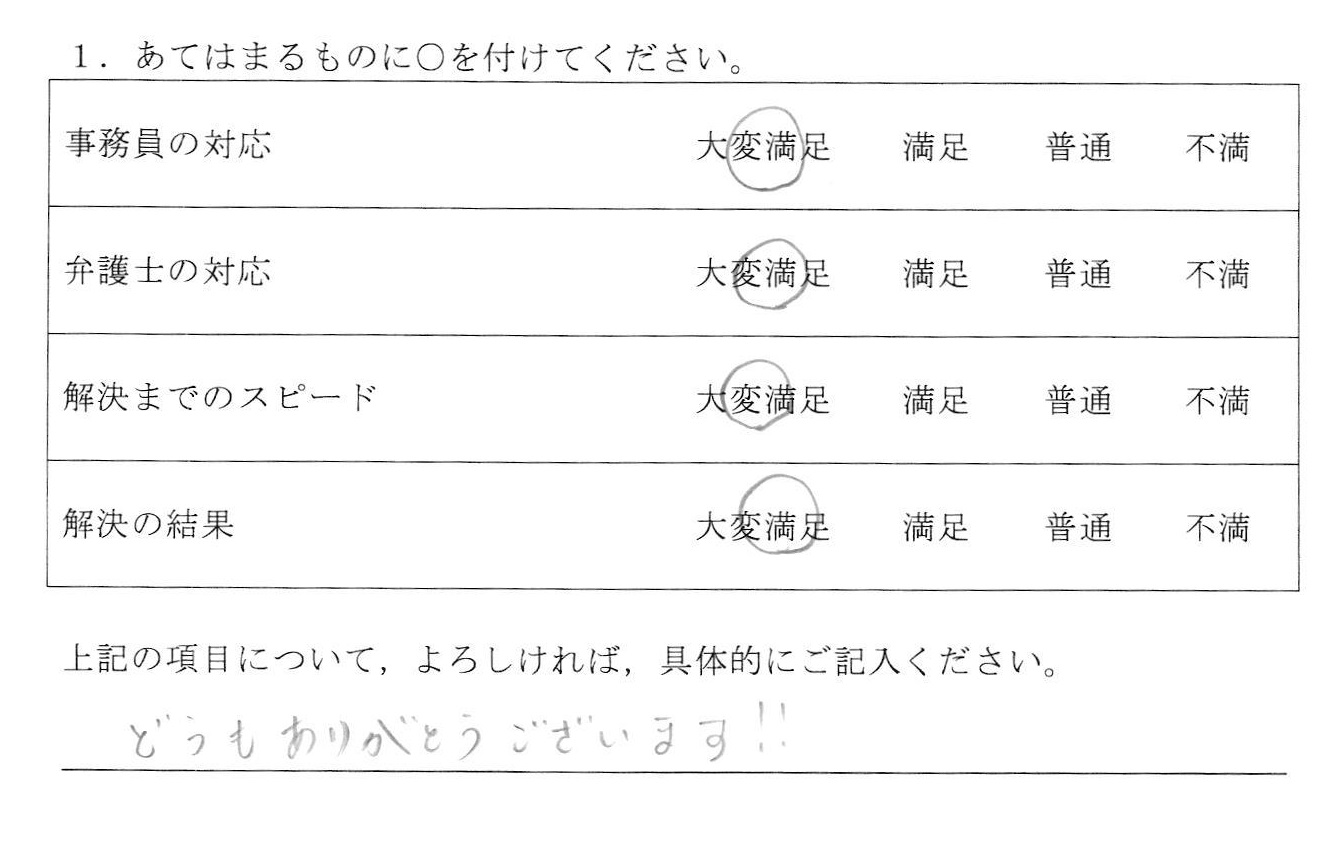 1．あてはまるものに〇を付けてください。
事務員の対応 大変満足 満足 普通 不満
弁護士の対応 大変満足 満足 普通 不満
解決までのスピード 大変満足 満足 普通 不満
解決の結果 大変満足 満足 普通 不満
上記の項目について，よろしければ，具体的にご記入ください。
どうもありがとうございます!!